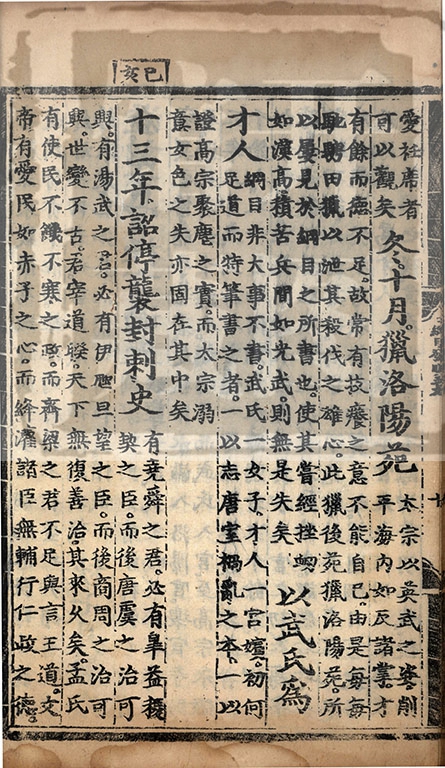 己亥
愛衽席者
可以觀矣
冬十月獵洛陽苑
太宗以英武之姿削
平海內如反諸掌才
有餘而德不足故常有技癢之意不能自已由是每每
馳騁田獵以泄其殺伐之雄心此獵後苑獵洛陽苑所
以屢見於綱目之所書也使其嘗經挫衂
如漢高積苦兵間如光武則無是失矣
以武氏爲
才人
綱目非大事不書武氏一女子才人一宮嬪初何
足道而特筆書之者一以志唐室禍亂之本一以
證高宗聚麀之實而太宗溺
意女色之失亦固在其中矣
十三年詔停襲封刺史
有堯舜之君必有皐益稷
契之臣而後唐虞之治可
興有湯武之君必有伊虺旦望之臣而後商周之治可
興世變不古君宰道睽天下無復善治其來久矣孟氏
有使民不饑不寒之政而齊梁之君不足與言王道文
帝有愛民如赤子之心而絳灌諸臣無輔行仁政之德